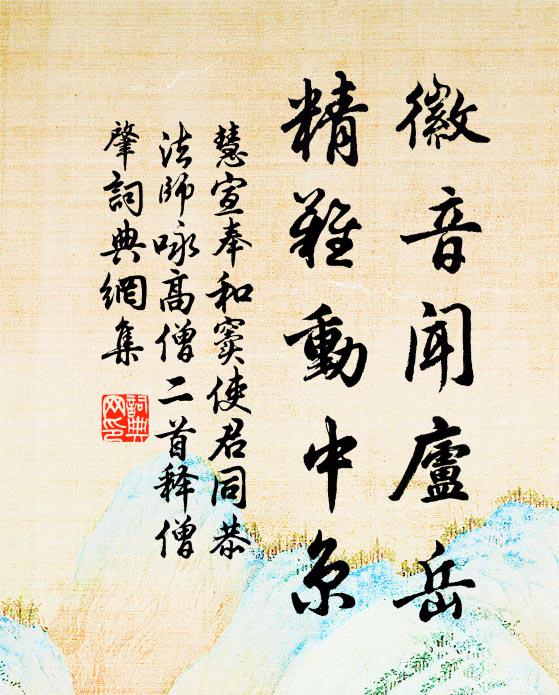 徽音聞廬岳
精難動中京
慧宣奉和窦使君同恭
法師咏高僧二首释僧
肇詞典網集
詞典
网印